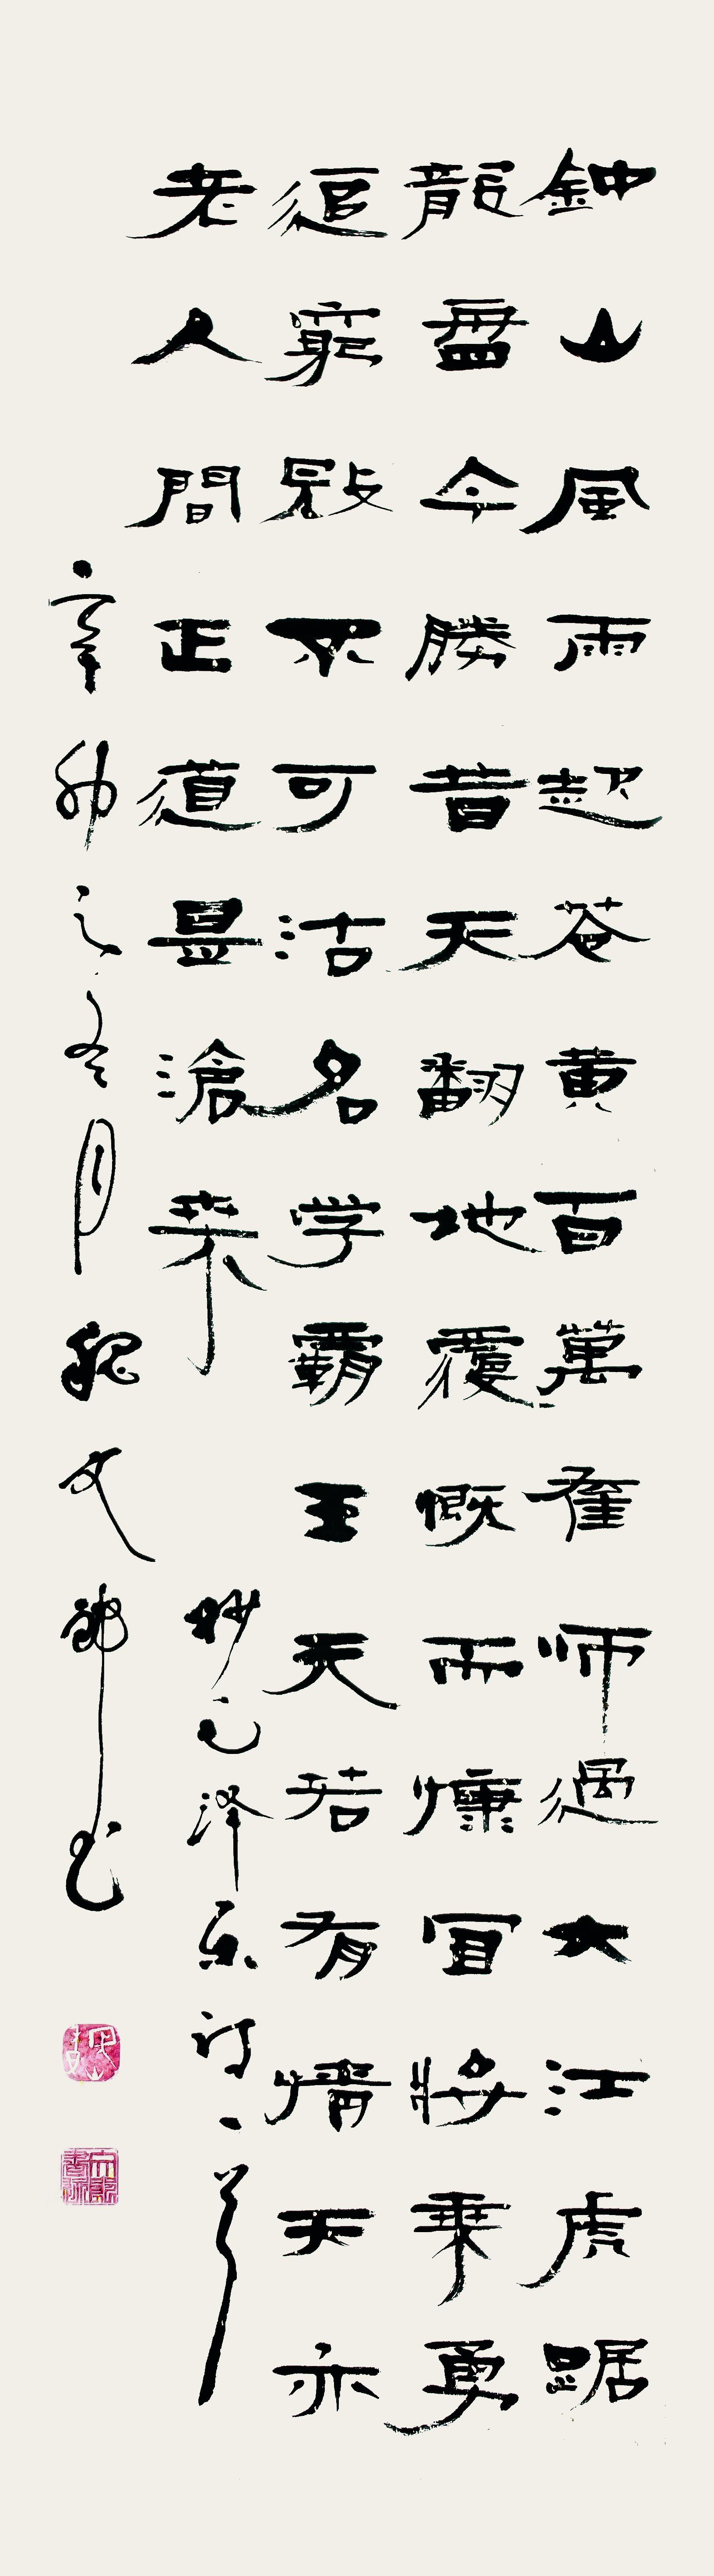 鈡山風雨起苍黄百萬雄师過大江虎踞
龍盘今勝昔天翻地覆慨而慷宜將乘勇
追窮寇不可沽名学霸王天若有情天亦
老人間正道是滄桑 抄毛泽东诗一首
辛卯之冬月魏文书